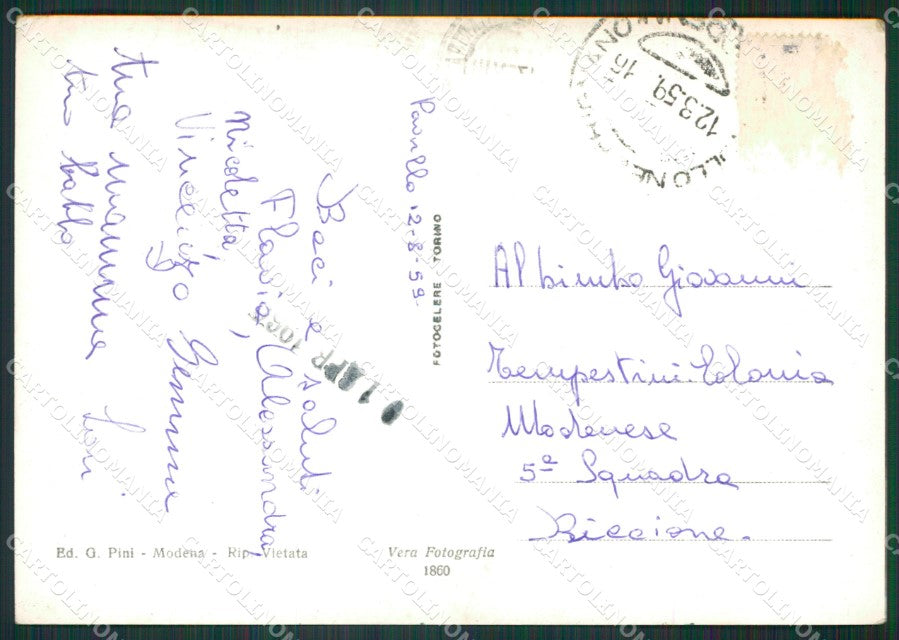 Pavullo 12-8-59
Baci e saluti
Flavia, Alessandra,
Nicoletta,
Vincenzo Gemma
tua mamma
tuo babbo
Al bimbo Giovanni
Tempestini. Colonia
Modenese
5ª Squadra
Riccione.
FOTOCELERE TORINO
12.3.59. 16
Ed. G. Pini - Modena - Rip. Vietata
Vera Fotografia
1860
CARTOLINOMANIA